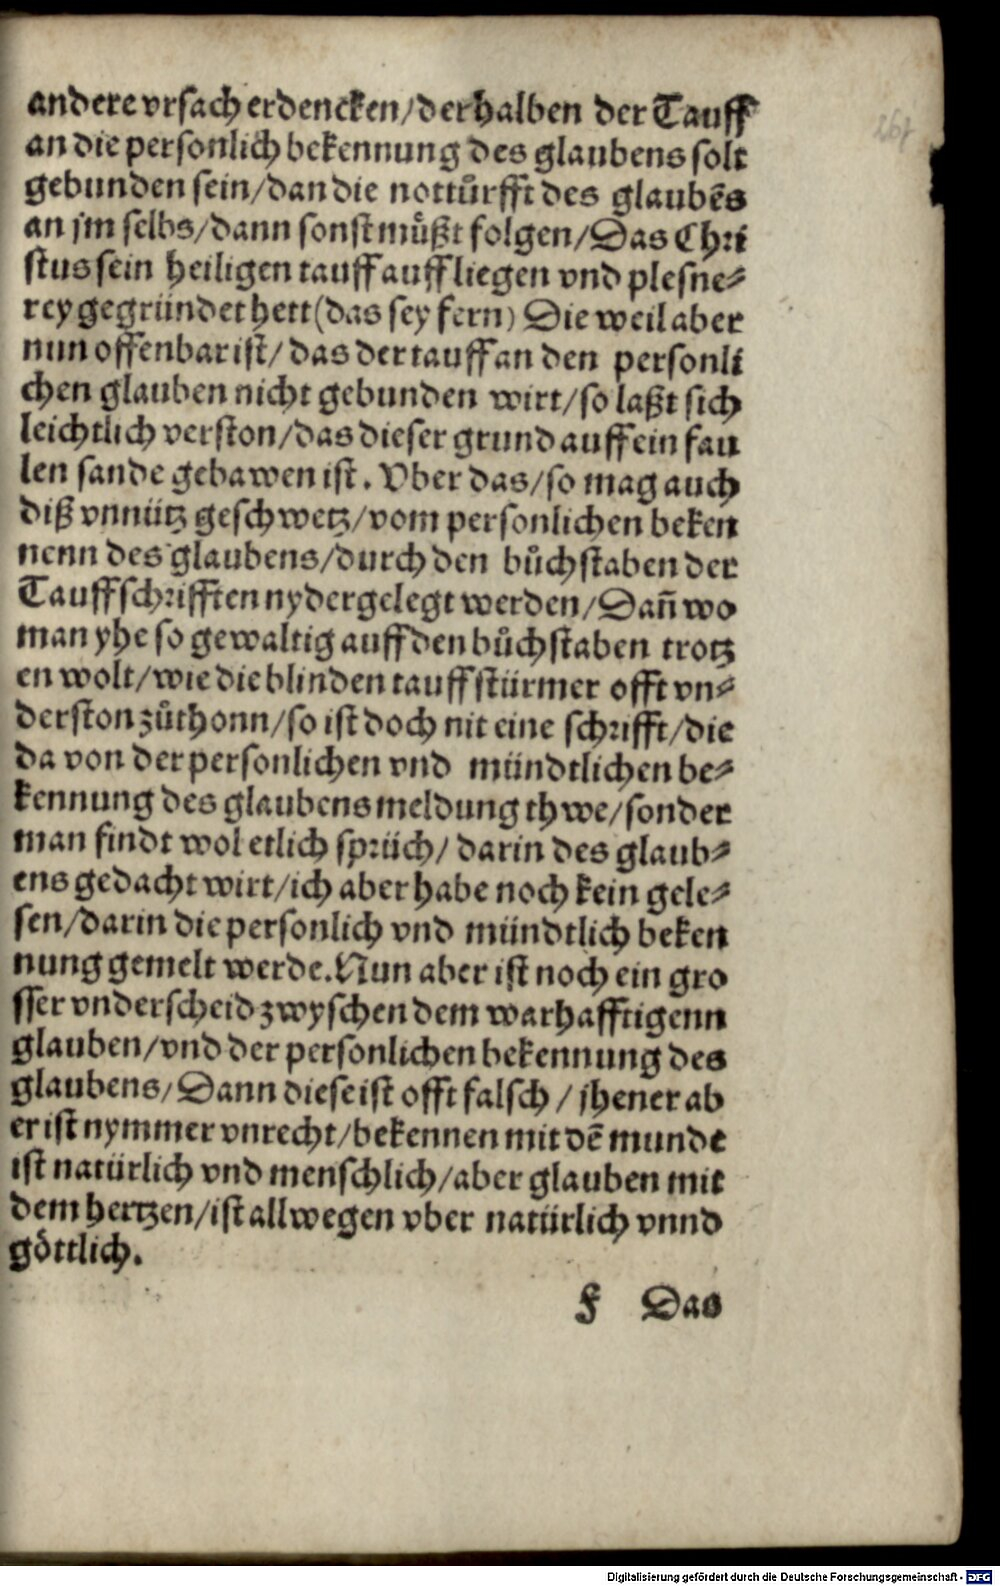 andere vrsach erdencken/derhalben der Tauff
an die personlich bekennung des glaubens solt
gebunden sein/dan die nottůrfft des glaubẽs
an jm selbs/dann sonst můßt folgen/Das Chri
stus sein heiligen tauff auff liegen vnd plesne⸗
rey gegründet hett(das sey fern) Die weil aber
nun offenbar ist/das der tauff an den personli
chen glauben nicht gebunden wirt/so laßt sich
leichtlich verston/das dieser grund auff ein fau
len sande gebawen ist. Vber das/so mag auch
diß vnnütz geschwetz/vom personlichen beken
nenn des glaubens/durch den bůchstaben der
Tauffschrifften nydergelegt werden/Dañ wo
man yhe so gewaltig auff den bůchstaben trotz
en wolt/wie die blinden tauffstürmer offt vn⸗
derston zůthonn/so ist doch nit eine schrifft/die
da von der personlichen vnd mündtlichen be⸗
kennung des glaubens meldung thwe/sonder
man findt wol etlich sprüch/darin des glaub⸗
ens gedacht wirt/ich aber habe noch kein gele⸗
sen/darin die personlich vnd mündtlich beken
nung gemelt werde. Nun aber ist noch ein gro
sser vnderscheid zwyschen dem warhafftigenn
glauben/vnd der personlichen bekennung des
glaubens/Dann diese ist offt falsch/jhener ab
er ist nymmer vnrecht/bekennen mit dẽ munde
ist natürlich vnd menschlich/aber glauben mit
dem hertzen/ist allwegen vber natürlich vnnd
göttlich.
F Das
Digitalisierung gefördert durch die Deutsche Forschungsgemeinschaft - DFG